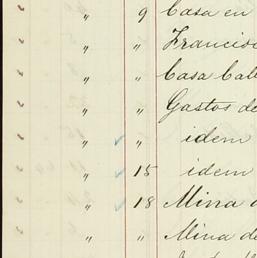 " 9 Casa en
" " Francisc
" " Casa Cab
" " Gastos de
" " idem
" 15 idem
" 18 Mina d
" " Mina de